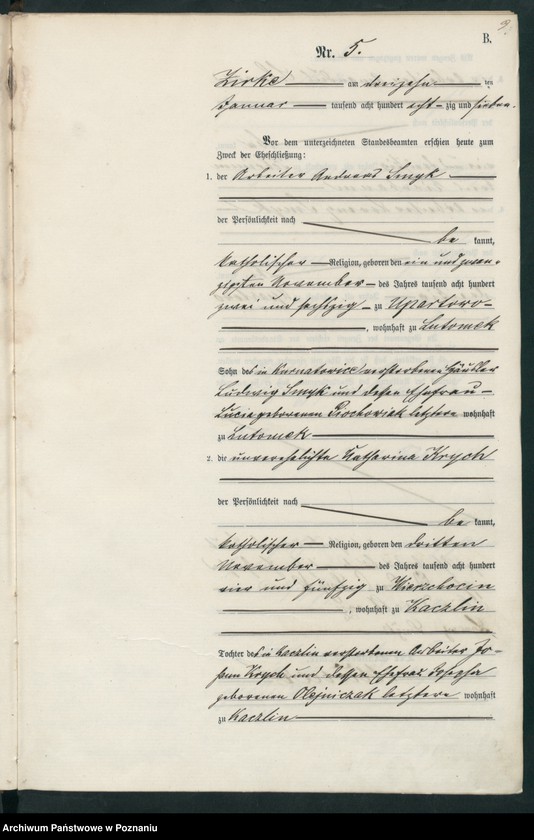 B.
Nr. 5.
Zirke am dreizehn ten
Januar tausend acht hundert acht-zig und sieben.
Vor dem unterzeichneten Standesbeamten erschien heute zum
Zweck der Eheschließung:
1. der Arbeiter Andreas Smyk
der Persönlichkeit nach
be kannt,
katholischer Religion, geboren den ein und zwan-
zigsten November des Jahres tausend acht hundert
zwei und sechszig zu Upartowo
, wohnhaft zu Lutomek
Sohn des in Kurnatowice verstorbenen Häusler
Ludwig Smyk und dessen Ehefrau
Lucie geborenen Piechowiak letztere wohnhaft
zu Lutomek
2. die unverehelichte Katharina Krych
der Persönlichkeit nach
be kannt,
katholischer Religion, geboren den dritten
November des Jahres tausend acht hundert
vier und fünfzig zu Wierzchocin
, wohnhaft zu Kaczlin
Tochter des in Kaczlin verstorbenen Arbeiter Jo-
hann Krych und dessen Ehefrau Josepha
geborenen Olejniczak letztere wohnhaft
zu Kaczlin
Archiwum Państwowe w Poznaniu